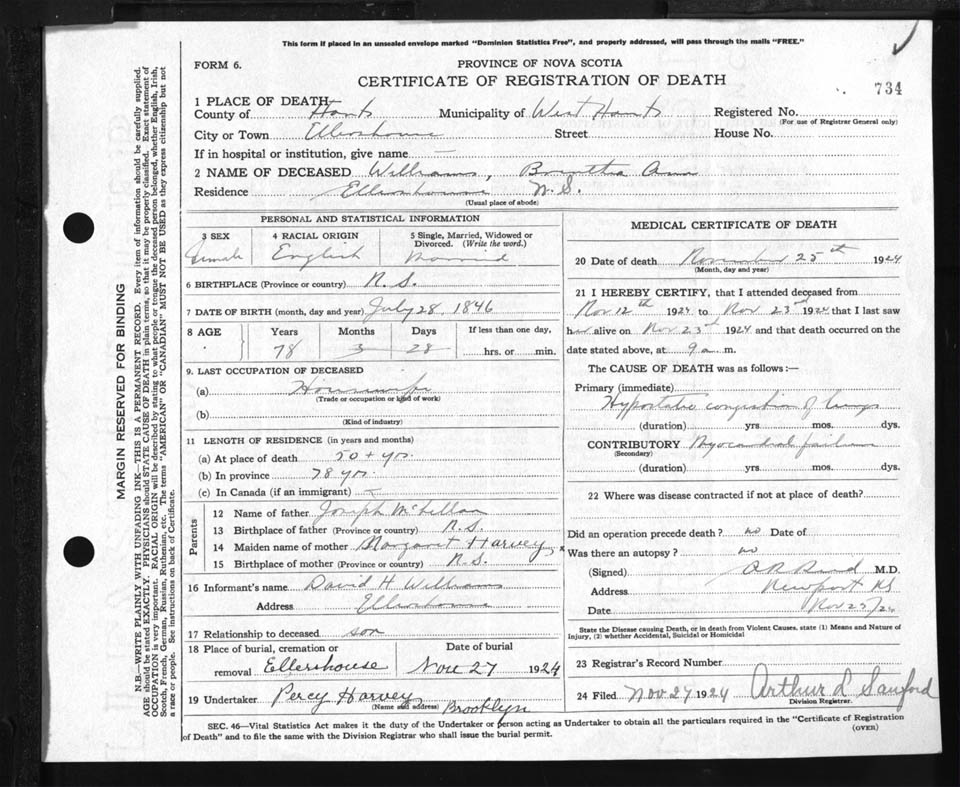 This form if placed in an unsealed envelope marked "Dominion Statistics Free", and properly addressed, will pass through the mails "FREE."
FORM 6.
PROVINCE OF NOVA SCOTIA
CERTIFICATE OF REGISTRATION OF DEATH
734
1 PLACE OF DEATH
County of Hants Municipality of West Hants Registered No.
(For use of Registrar General only)
City or Town Ellershouse Street House No.
If in hospital or institution, give name —
2 NAME OF DECEASED Williams, Ann
Residence Ellershouse N.S.
(Usual place of abode)
MARGIN RESERVED FOR BINDING
N.B.—WRITE PLAINLY WITH UNFADING INK—THIS IS A PERMANENT RECORD. Every item of information should be carefully supplied.
AGE should be stated EXACTLY. PHYSICIANS should STATE CAUSE OF DEATH in plain terms, so that it may be properly classified. Exact statement of
OCCUPATION is very important. RACIAL ORIGIN will be described by stating to what people or tongue the deceased person belonged, whether English, Irish,
Scotch, French, German, Russian, Ruthenian, etc. The terms "AMERICAN" OR "CANADIAN" MUST NOT BE USED as they express citizenship but not
a race or people. See instructions on back of Certificate.
PERSONAL AND STATISTICAL INFORMATION
3 SEX 4 RACIAL ORIGIN 5 Single, Married, Widowed or
Divorced. (Write the word.)
Female English Married
6 BIRTHPLACE (Province or country) N.S.
7 DATE OF BIRTH (month, day and year) July 28, 1846
8 AGE Years Months Days If less than one day,
78 3 28 hrs. or min.
9. LAST OCCUPATION OF DECEASED
(a) Housewife
(Trade or occupation or kind of work)
(b)
(Kind of industry)
11 LENGTH OF RESIDENCE (in years and months)
(a) At place of death 50 + yrs.
(b) In province 78 yrs.
(c) In Canada (if an immigrant)
Parents
12 Name of father Joseph McLellan
13 Birthplace of father (Province or country) N.S.
14 Maiden name of mother Margaret Harvey
15 Birthplace of mother (Province or country) N.S.
16 Informant's name David H. Williams
Address Ellershouse
17 Relationship to deceased son
18 Place of burial, cremation or Date of burial
removal Ellershouse Nov 27 1924
19 Undertaker Percy Harvey
(Name and address) Brooklyn
MEDICAL CERTIFICATE OF DEATH
20 Date of death November 25th 1924
(Month, day and year)
21 I HEREBY CERTIFY, that I attended deceased from
Nov 12th 1924 to Nov 23rd 1924 that I last saw
her alive on Nov 23rd 1924 and that death occurred on
the date stated above, at 9 a m.
The CAUSE OF DEATH was as follows:—
Primary (immediate)
Hypostatic congestion of lungs
(duration) yrs. mos. dys.
CONTRIBUTORY Myocardial failure
(Secondary)
(duration) yrs. mos. dys.
22 Where was disease contracted if not at place of death?
Did an operation precede death? no Date of
Was there an autopsy? no
(Signed) M.D.
Address Newport NS
Date Nov 25/24
State the Disease causing Death, or in death from Violent Causes, state (1) Means and Nature of
Injury, (2) whether Accidental, Suicidal or Homicidal
23 Registrar's Record Number
24 Filed Nov 27 1924 Arthur L Sanford
Division Registrar.
SEC. 46—Vital Statistics Act makes it the duty of the Undertaker or person acting as Undertaker to obtain all the particulars required in the "Certificate of Registration
of Death" and to file the same with the Division Registrar who shall issue the burial permit.
(OVER)